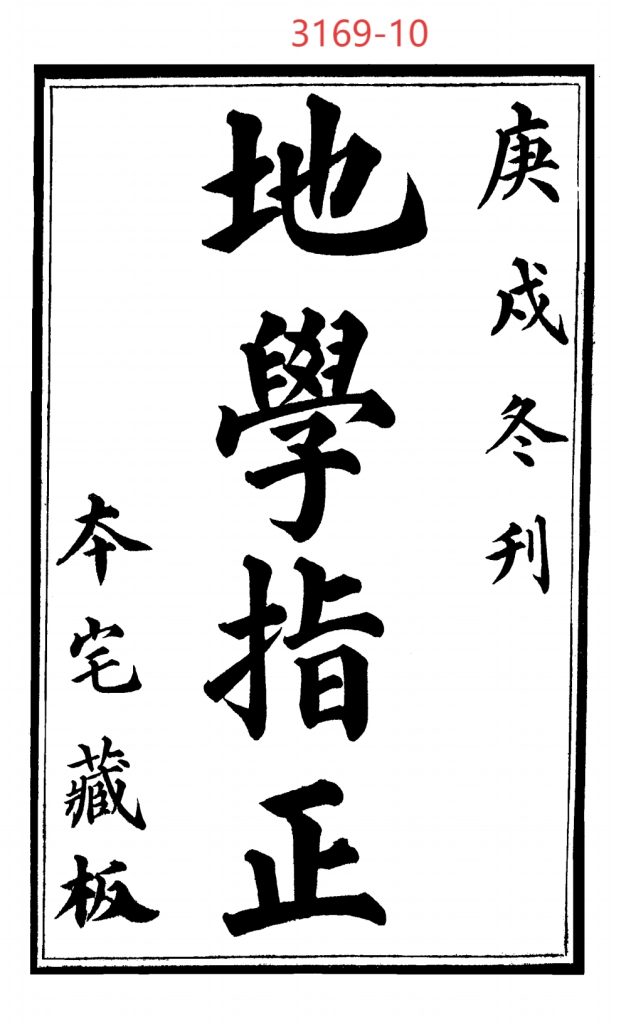 3169-10
庚戍冬刊
地學指正
本宅藏板